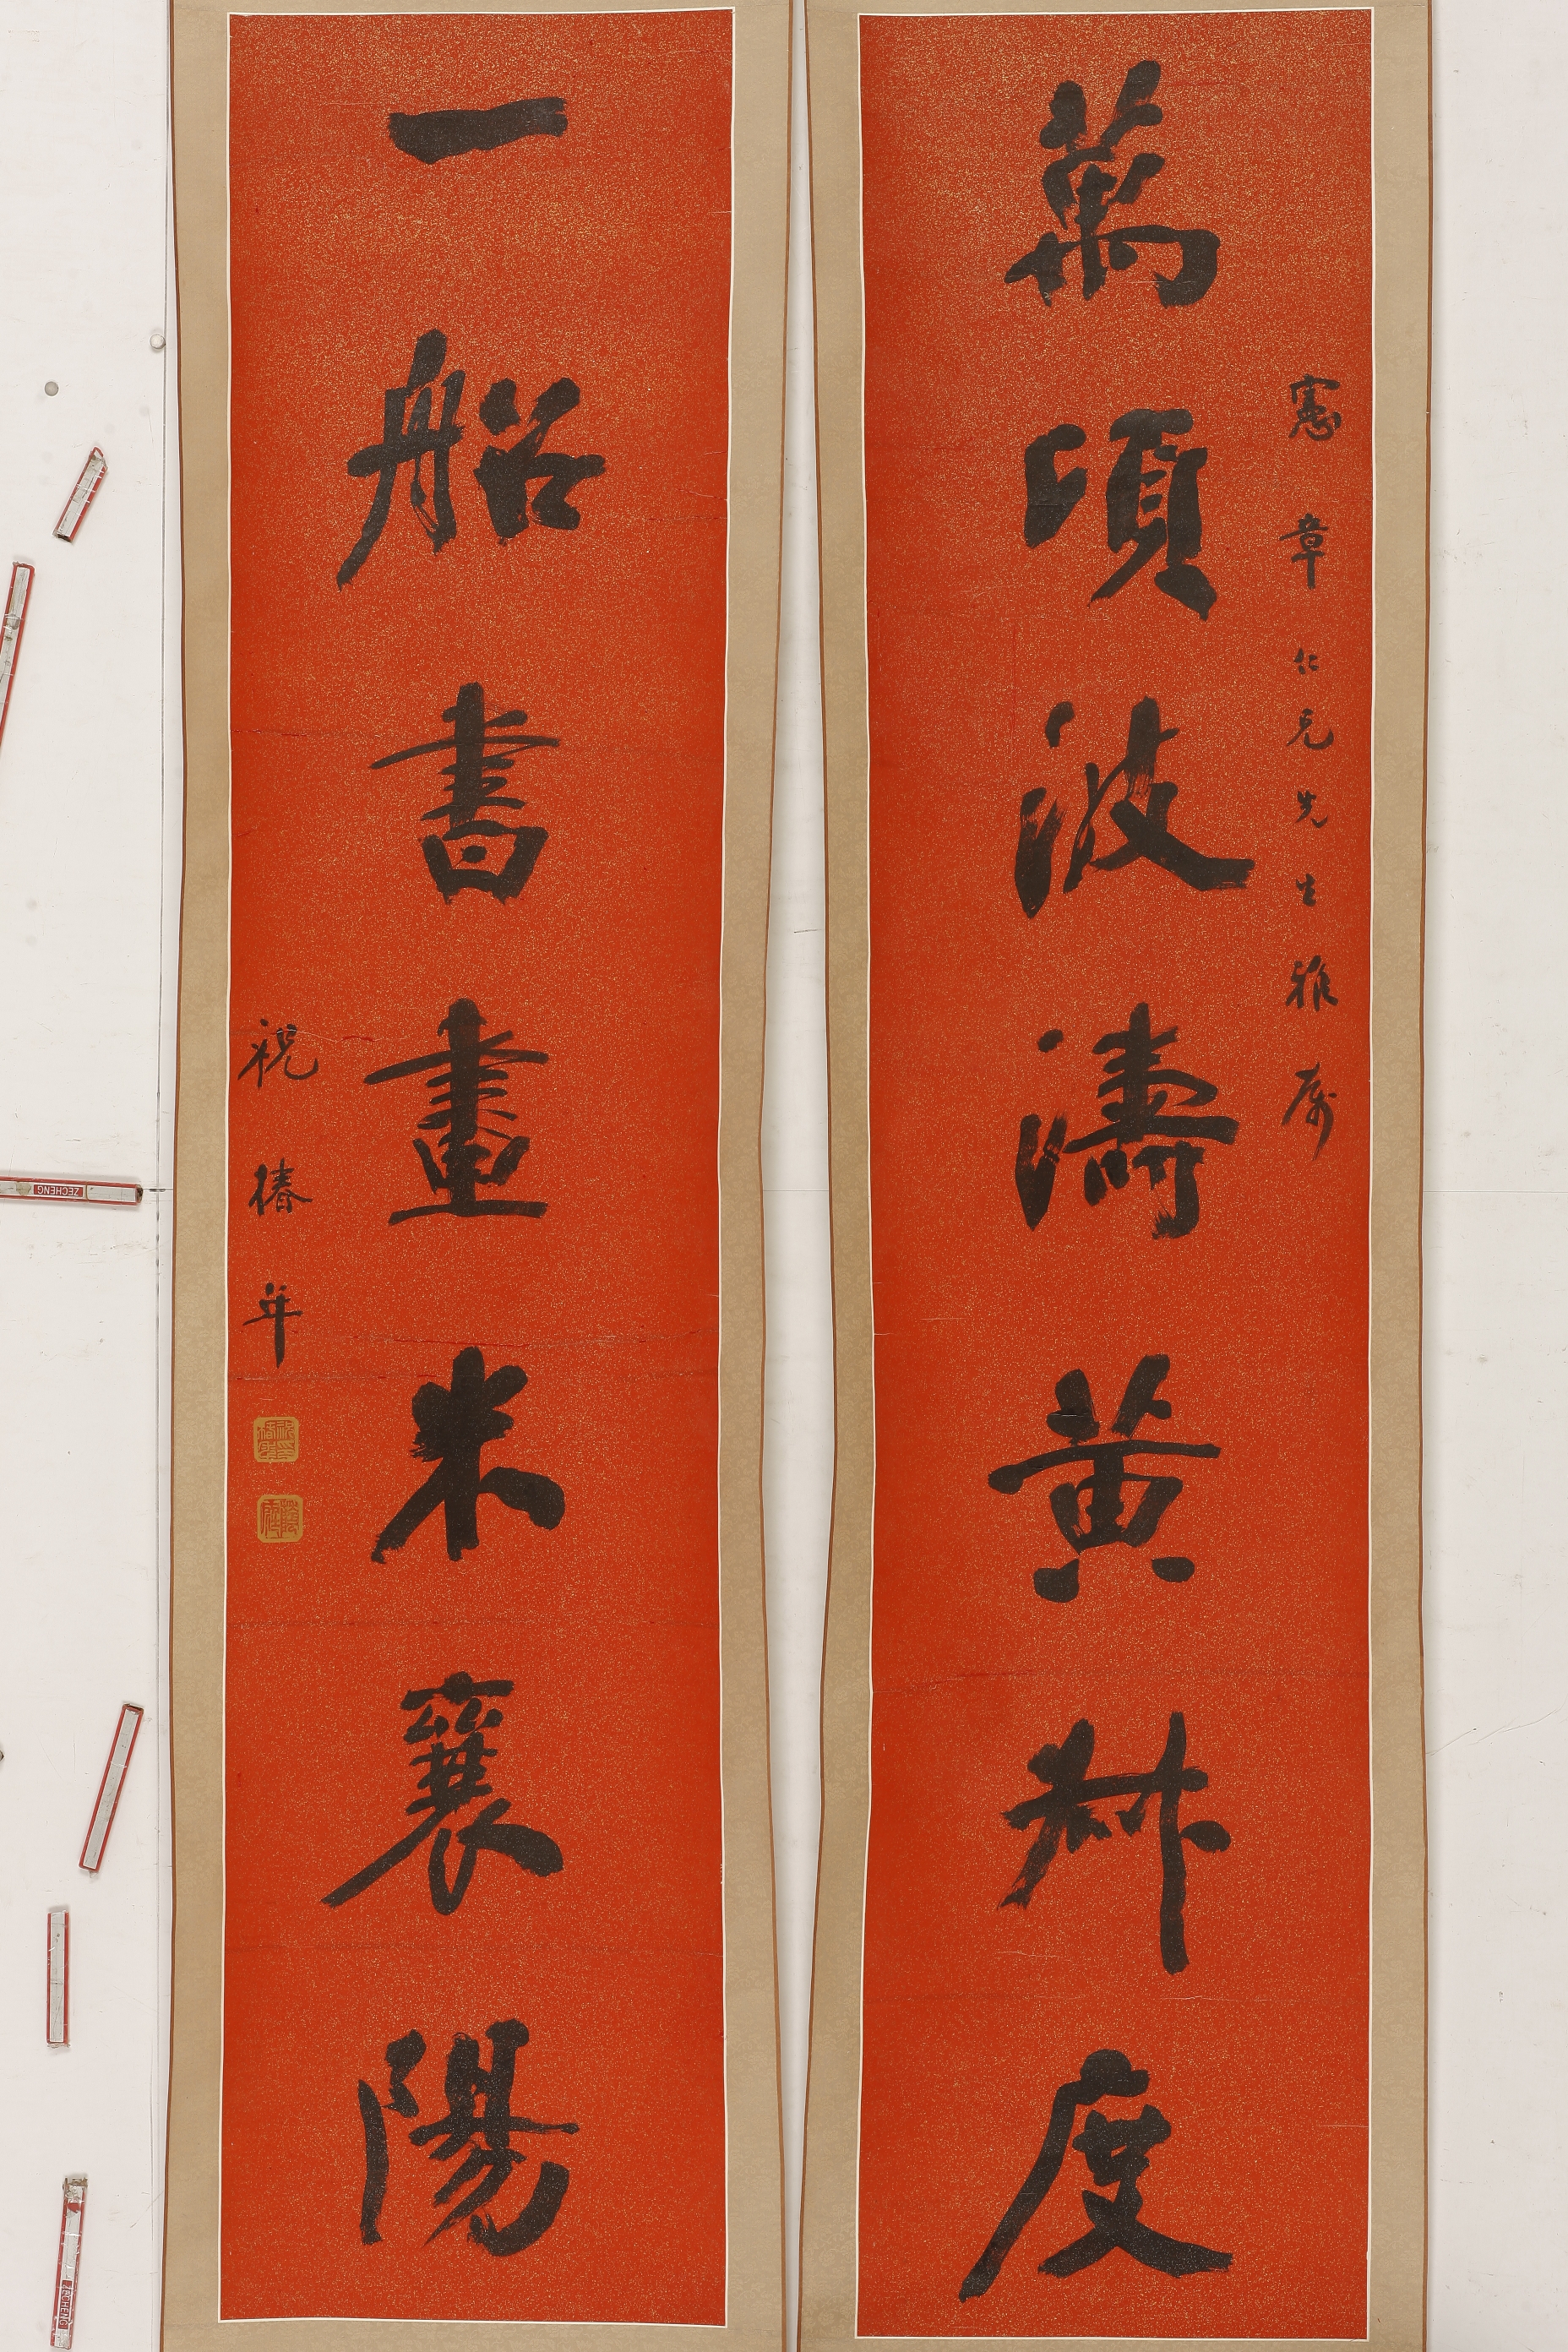 萬頃波濤黃叔度
憲章仁兄先生雅属
一船書畫米襄陽
祝椿年
ZECHENG
ZECHENG